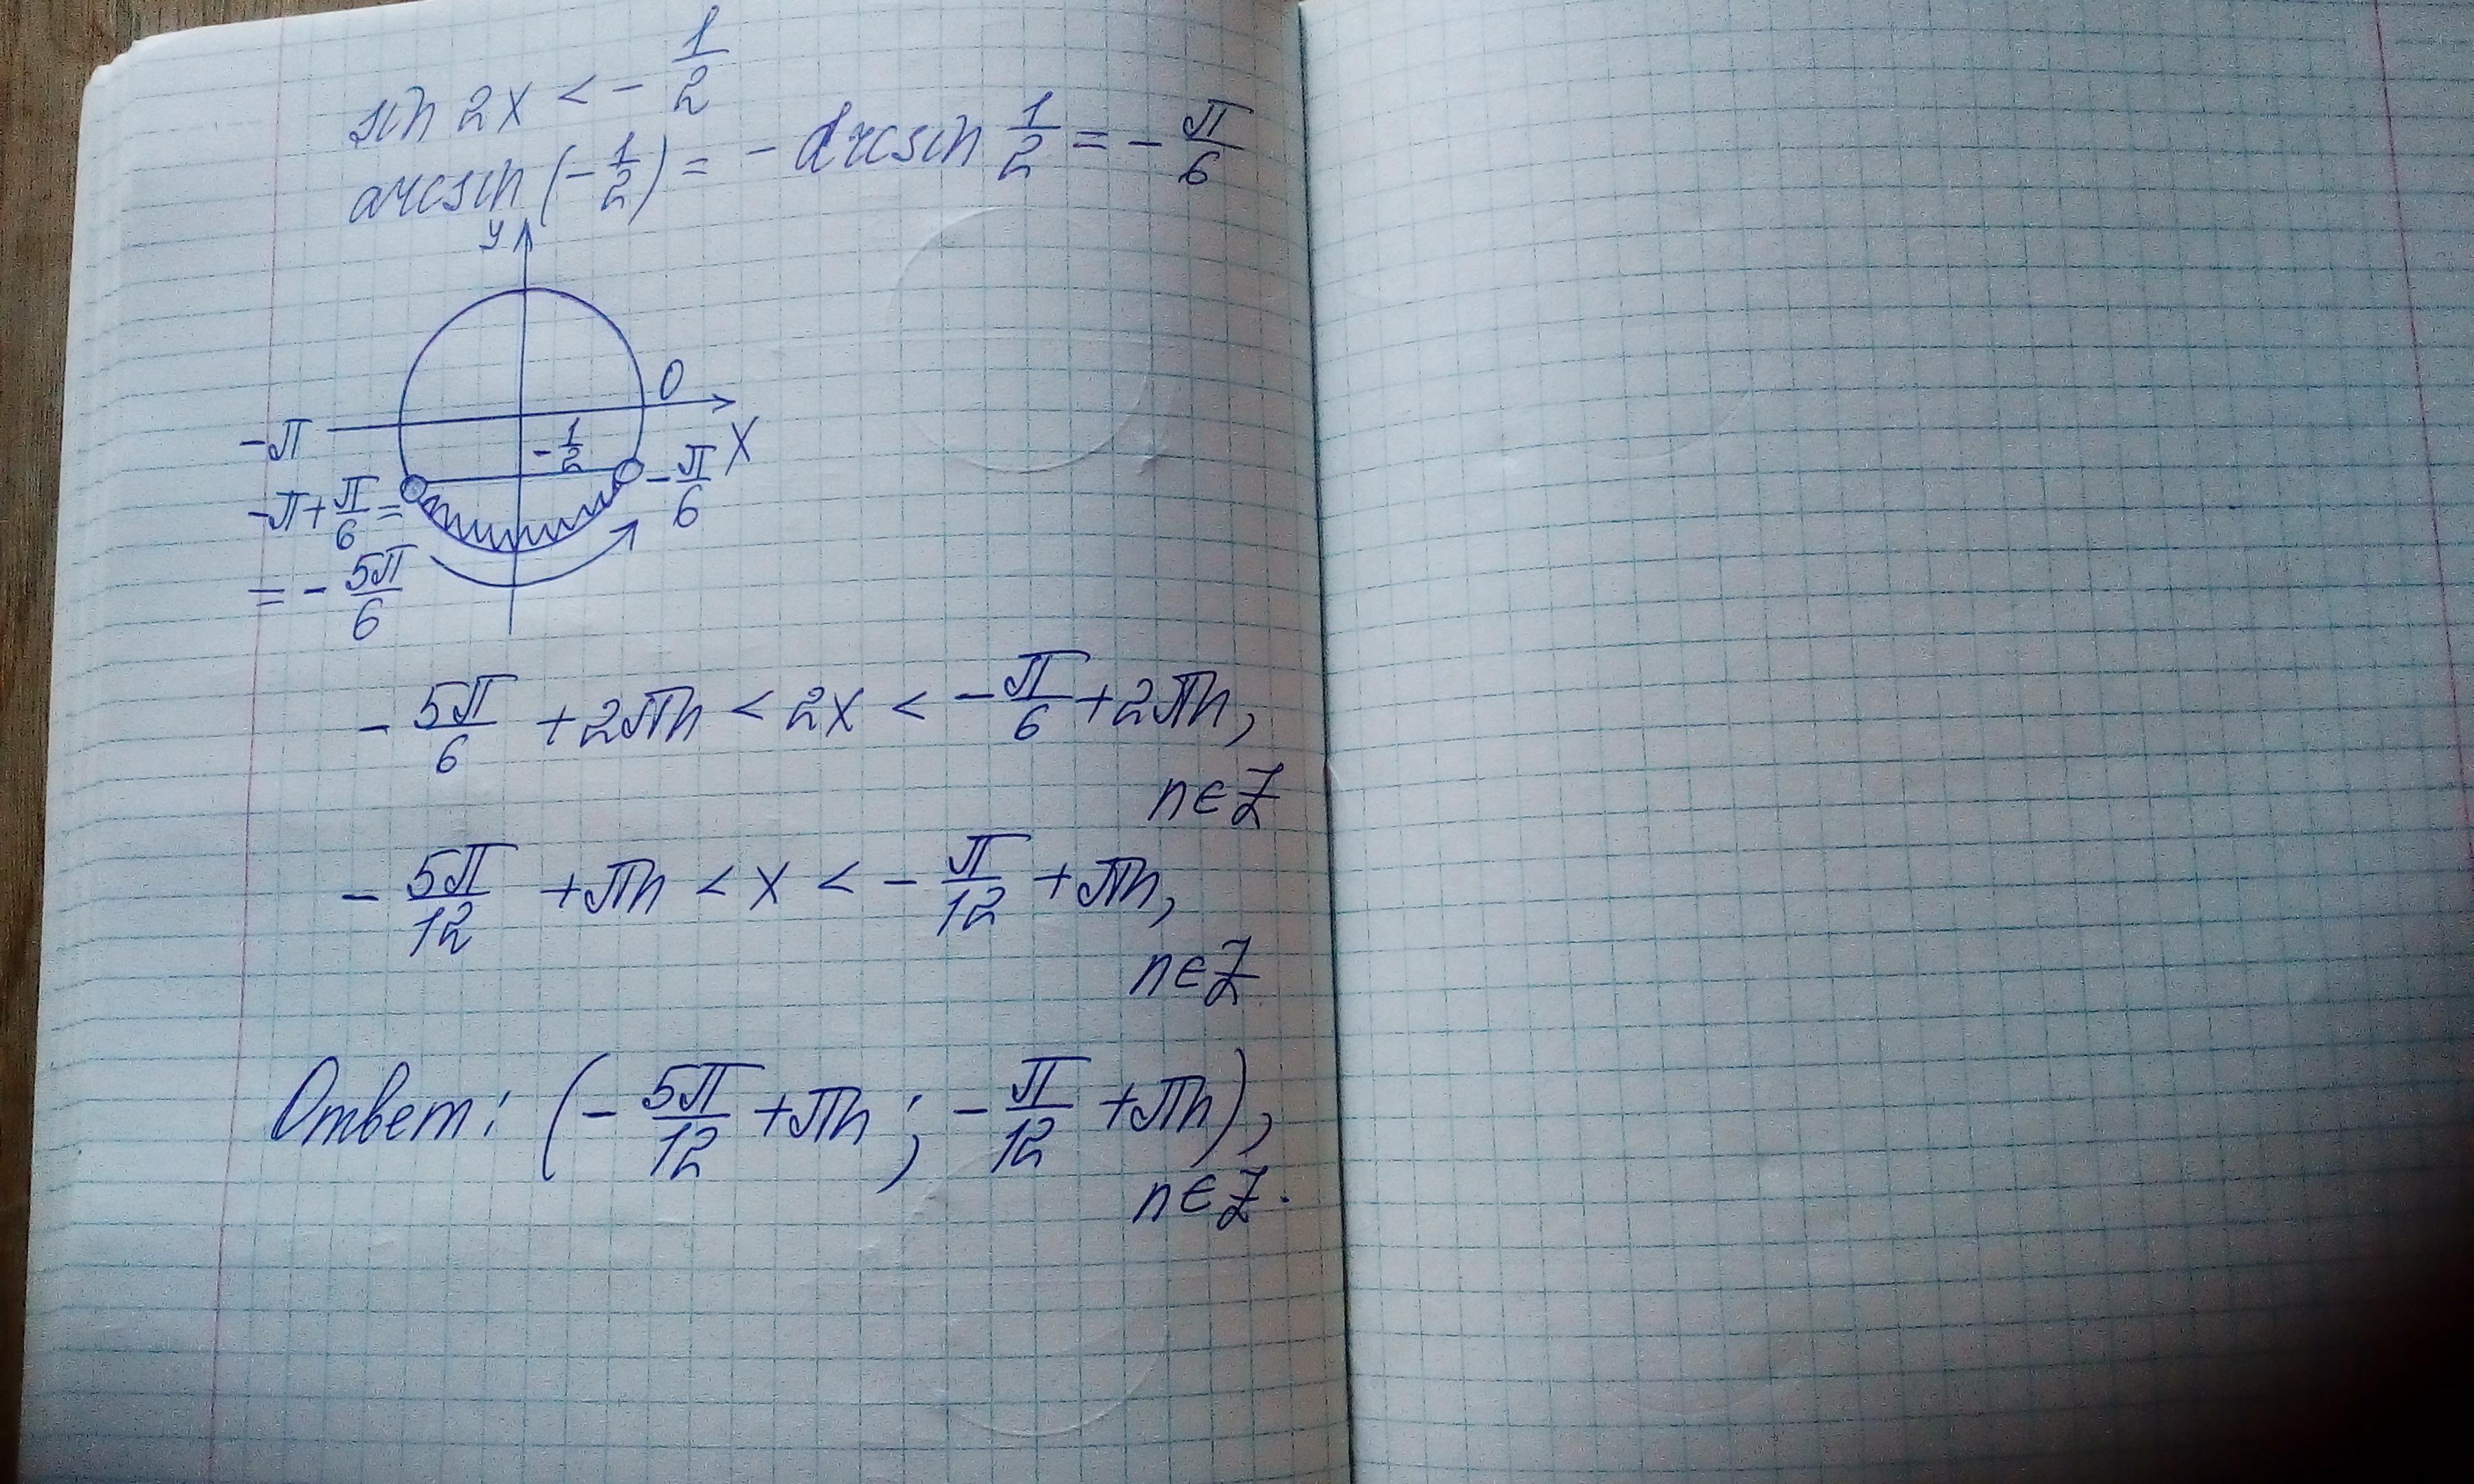 sin 2x < - 1/2
arcsin (- 1/2) = - arcsin 1/2 = - π/6
y
0
-π
- 1/2
x
- π/6
-π + π/6 =
= - 5π/6
- 5π/6 + 2πn < 2x < - π/6 + 2πn,
n ∈ Z
- 5π/12 + πn < x < - π/12 + πn,
n ∈ Z
Ответ: (- 5π/12 + πn ; - π/12 + πn),
n ∈ Z.